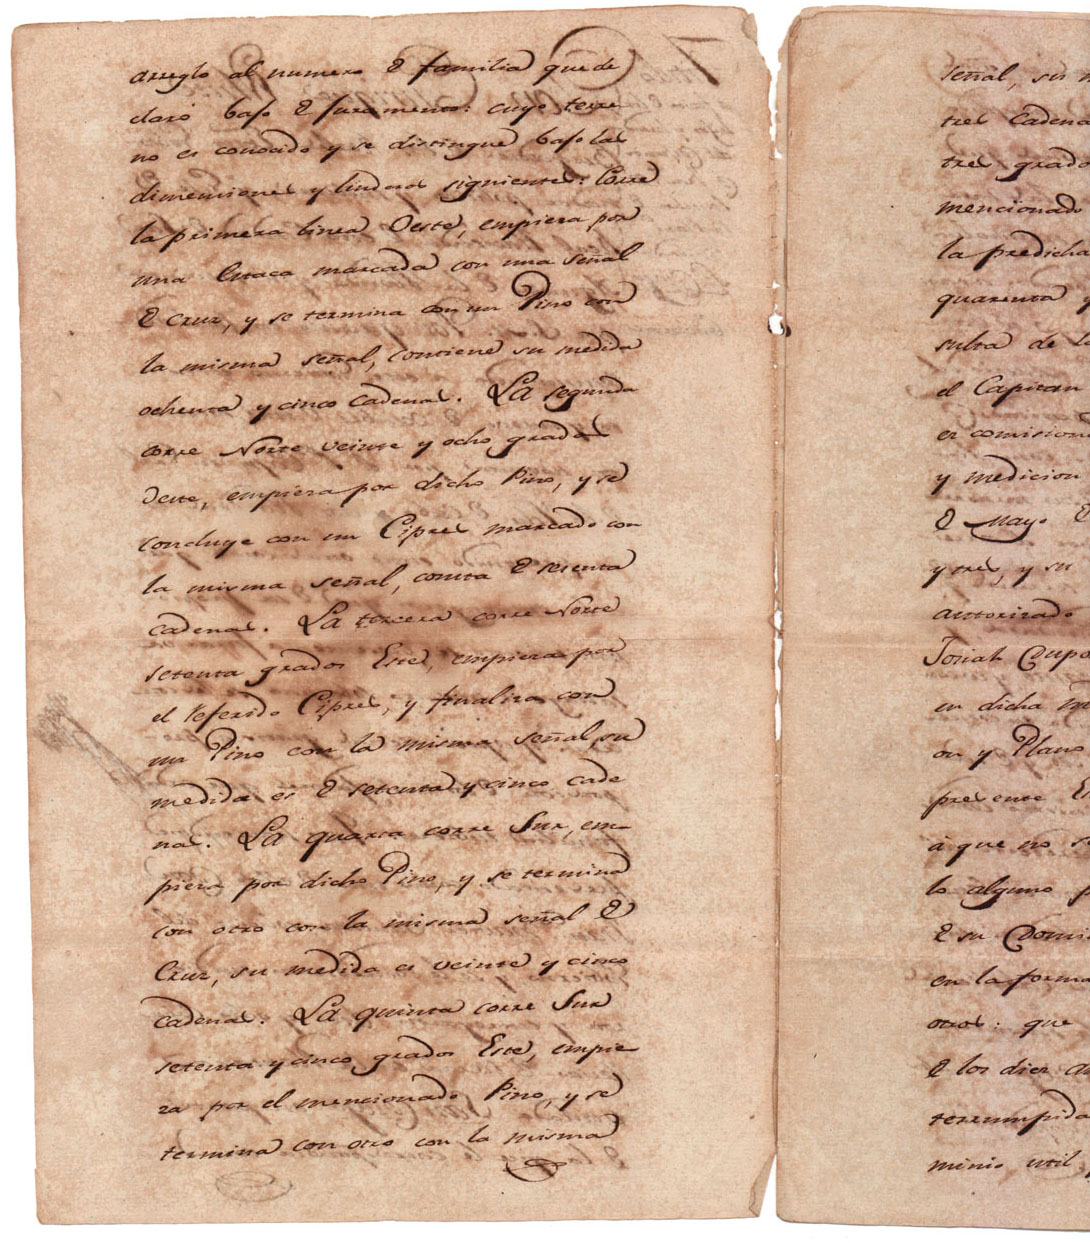 arreglo al numero đ familia que de
claró bajo đ juramento: cuyo terre
no es conocido y se distingue bajo las
dimensiones y linderos siguientes: Corre
la primera linea Oeste, empieza por
una Estaca marcada con una señal
đ Cruz, y se termina con un Pino con
la misma señal, contiene su medida
ochenta y cinco Cadenas. La segunda
corre Norte veinte y ocho grados
Oeste, empieza por dicho Pino, y se
concluye con un Cipres marcado con
la misma señal, consta đ sesenta
cadenas. La tercera corre Norte
setenta grados Este, empieza por
el referido Cipres, y finaliza con
un Pino con la misma señal, su
medida es đ setenta y cinco cade
nas. La quarta corre Sur, em-
pieza por dicho Pino, y se termina
con otro con la misma señal đ
Cruz, su medida es veinte y cinco
cadenas. La quinta corre Sur
setenta y cinco grados Este, empie-
za por el mencionado Pino, y se
termina con otro con la misma
señal, su
tres Cadena
tres grado
mencionado
la predicha
quarenta y
sulta de la
el Capitan
es comision
y medicion
đ Mayo
y tres, y su
autorizado
Josiah Dupo
en dicha
on y Plano
presente
á que no se
lo alguno
đ su Domi
en la forma
otros: que
đ los diez
terrumpida
minio util